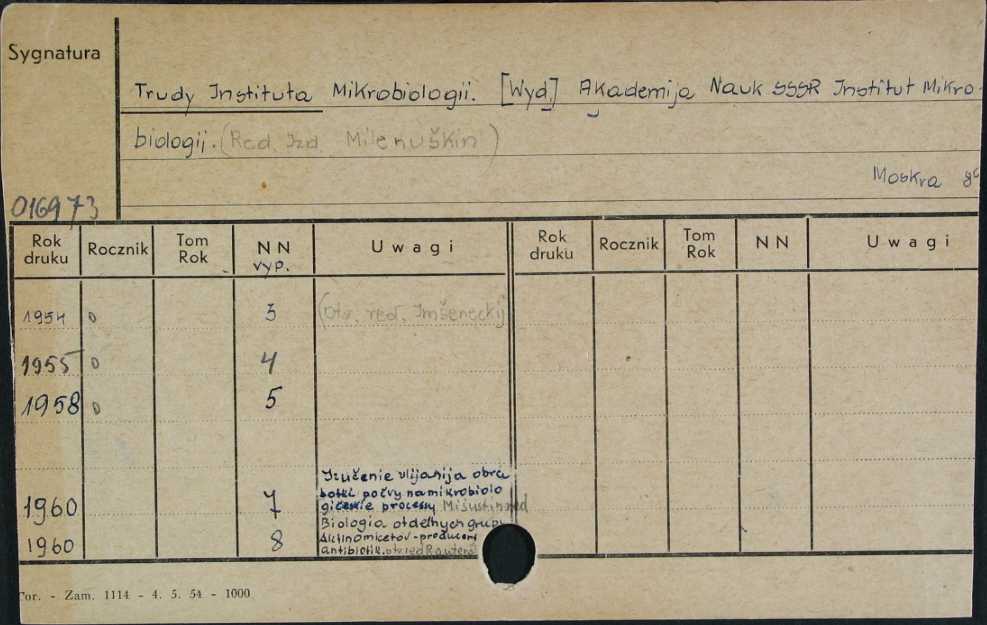 Sygnatura
Trudy Instituta Mikrobiologii. [Wyd.] Akademija Nauk SSSR Institut Mikro-
biologij. (Red. Izd. Milenuškin)
Moskva
016973
Rok druku Rocznik Tom Rok NN vyp. Uwagi Rok druku Rocznik Tom Rok NN Uwagi
1954 0 3 (otv. red. Imšeneckij
1955 0 4
1958 0 5
Izučenie vlijanija obra
botki počvy na mikrobiolo
1960 7 gičeskie processy Mišustin red
Biologia otdelnych grupp
1960 8 Aktinomicetov-producent
antibiotik. otv. red
Tor. - Zam. 1114 - 4. 5. 54 - 1000